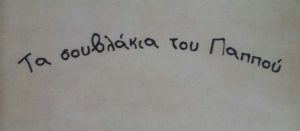 Τα σουβλάκια του Παππού